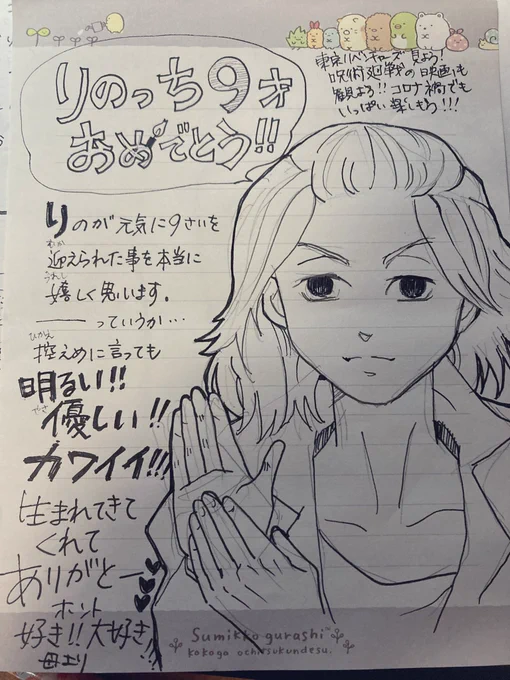 りのっち9才
おめでとう!!
東京リベンジャーズ見よう!
呪術廻戦の映画も
観よう!!コロナ禍でも
いっぱい楽しもう!!!
りのが元気に9さいを
迎えられた事を本当に
むか
嬉しく思います。
うれし
――っていうか…
控えめに言っても
ひかえ
明るい!!
優しい!!
やさ
カワイイ!!!
生まれてきて
くれて
ありがとー
ホント
好き!!大好き
母より
Sumikko gurashi™
kokoga ochitsukundesu.